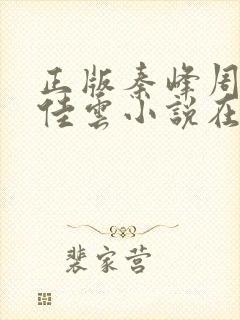 正版秦峰周
佳雲小說在
裴家营